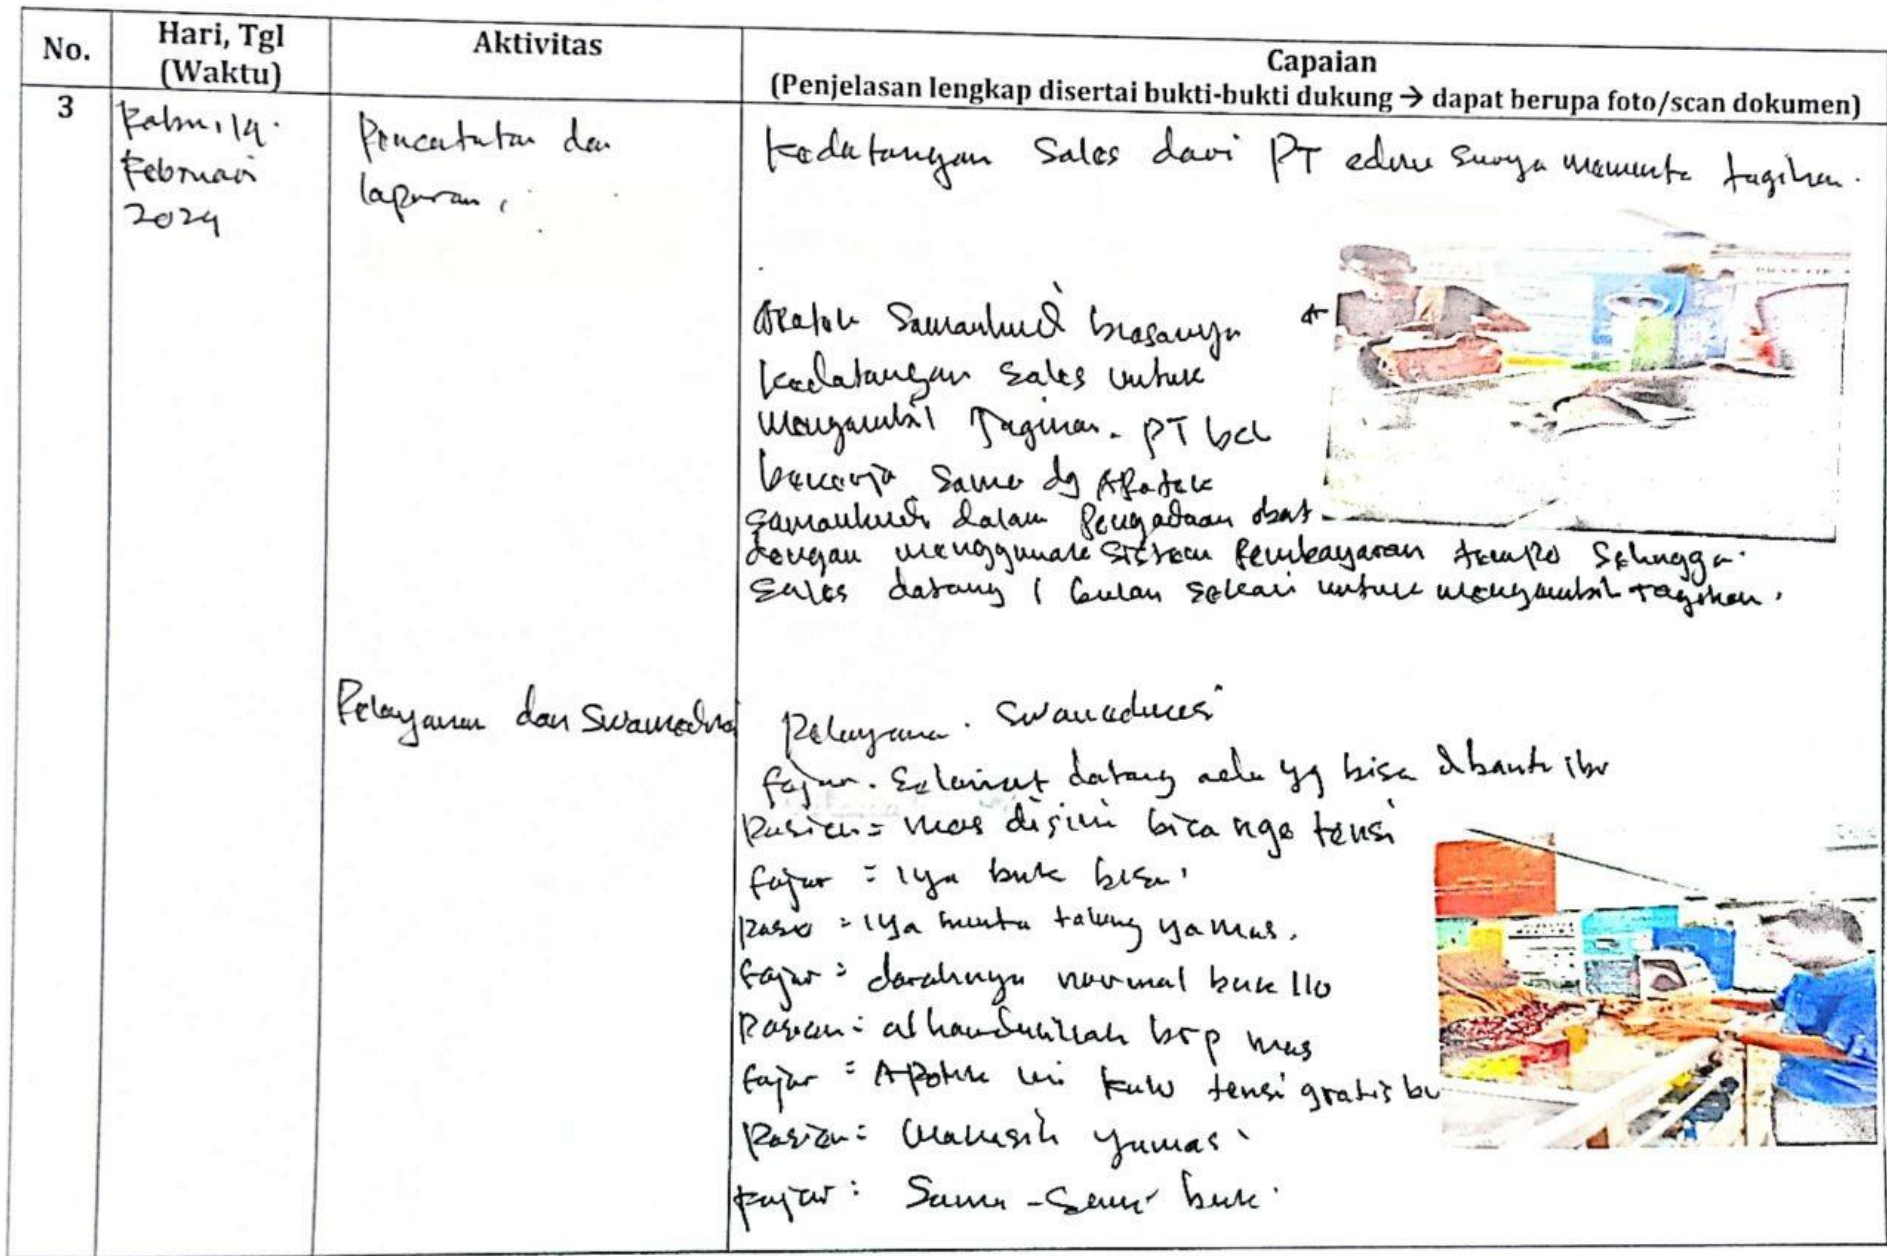 No.
Hari, Tgl
(Waktu)
Aktivitas
Capaian
(Penjelasan lengkap disertai bukti-bukti dukung → dapat berupa foto/scan dokumen)
3
Rabu, 14
Februari
2024
Pencatatan dan
laporan,
Kedatangan Sales dari PT Surya meminta tagihan.
Apotek Samanhudi biasanya
kedatangan sales untuk
mengambil Tagihan. PT
bekerja sama dg Apotek
Samanhudi dalam pengadaan obat
dengan menggunak sistem pembayaran tempo sehingga
sales datang 1 bulan sekali untuk mengambil tagihan.
Pelayanan dan Swamedikasi
Pelayanan Swamedikasi
Fajar. Selamat datang ada yg bisa dibantu ibu
Pasien = mas disini bisa nge tensi
Fajar = iya buk bisa.
Pasien = iya minta tolong ya mas.
Fajar = darahnya normal buk 110
Pasien = alhamdulillah brp mas
Fajar = Apotek ini kalo tensi gratis bu
Pasien = Makasih ya mas
Fajar : Sama-sama buk.